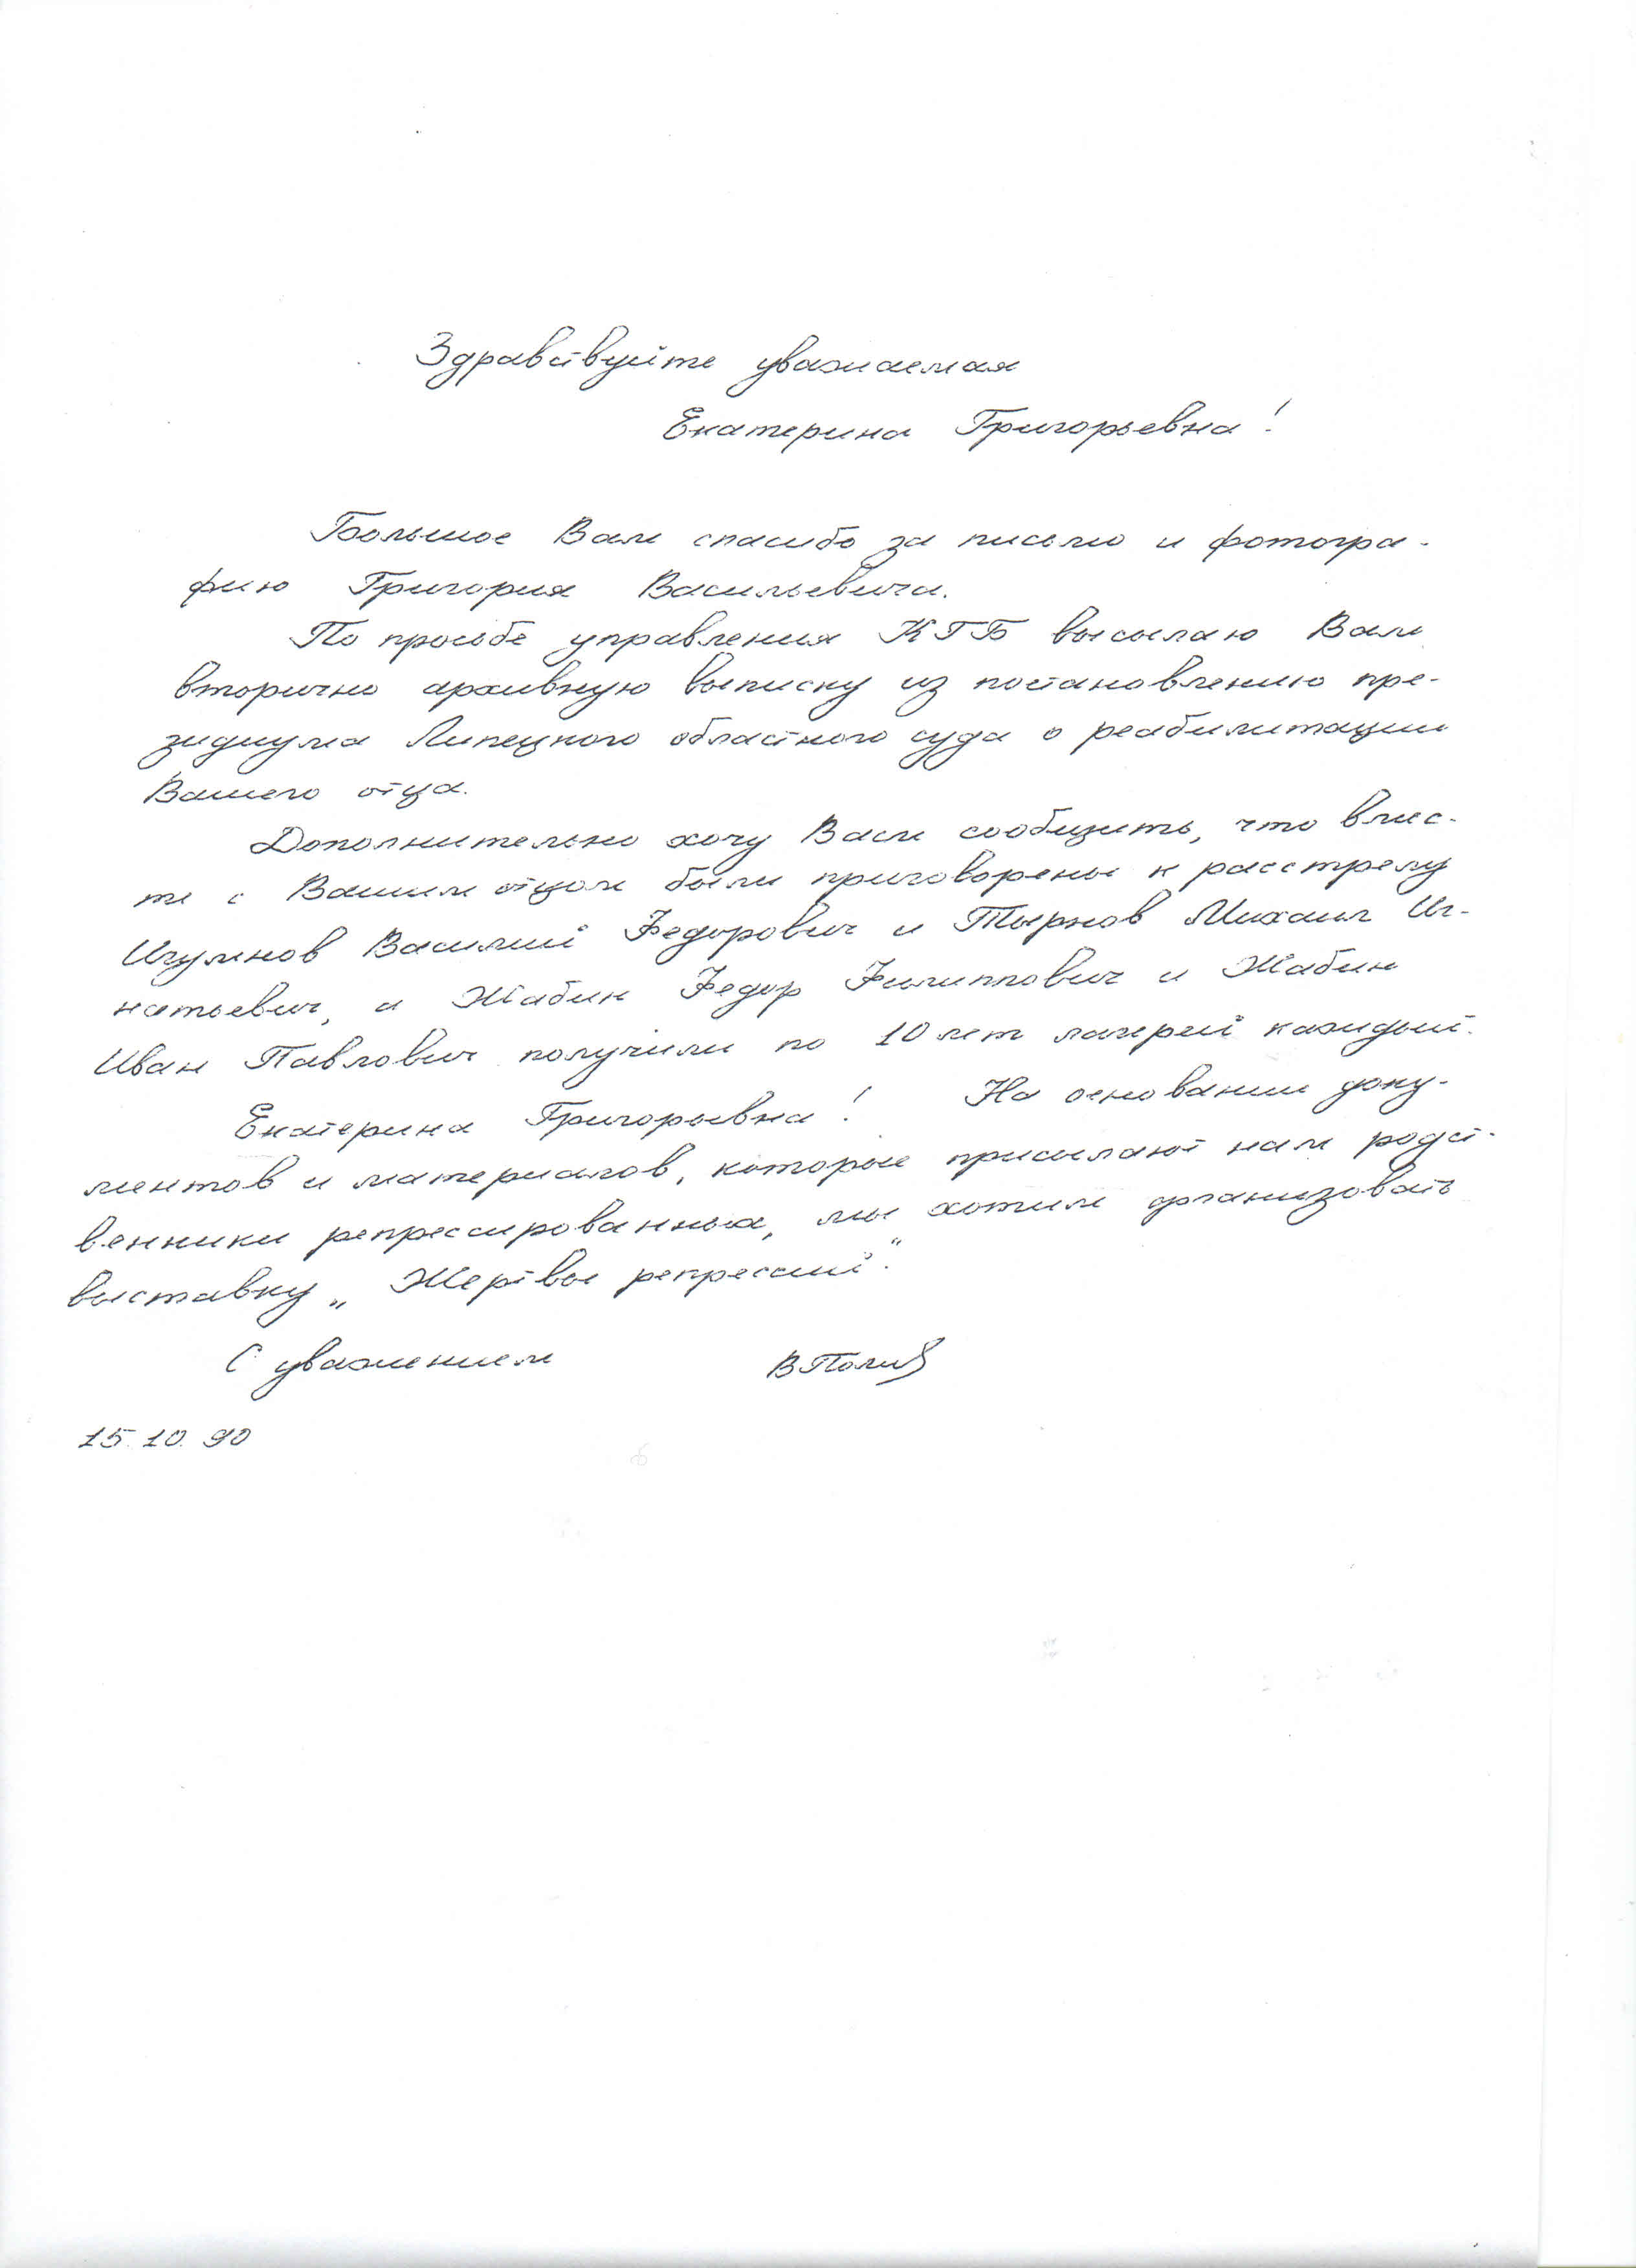 Здравствуйте уважаемая
Екатерина Григорьевна!
Большое Вам спасибо за письмо и фотогра-
фию Григория Васильевича.
По просьбе управления КГБ высылаю Вам
вторично архивную выписку из постановлению пре-
зидиума Липецкого областного суда о реабилитации
Вашего отца.
Дополнительно хочу Вам сообщить, что вмес-
те с Вашим отцом были приговорены к расстрелу
Игумнов Василий Федорович и Тырнов Михаил Иг-
натьевич, а Жабин Федор Филиппович и Жабин
Иван Павлович получили по 10 лет лагерей каждый.
Екатерина Григорьевна! На основании доку-
ментов и материалов, которые присылают нам родст-
венники репрессированных, мы хотим организовать
выставку „Жертвы репрессий".
С уважением
15.10.90